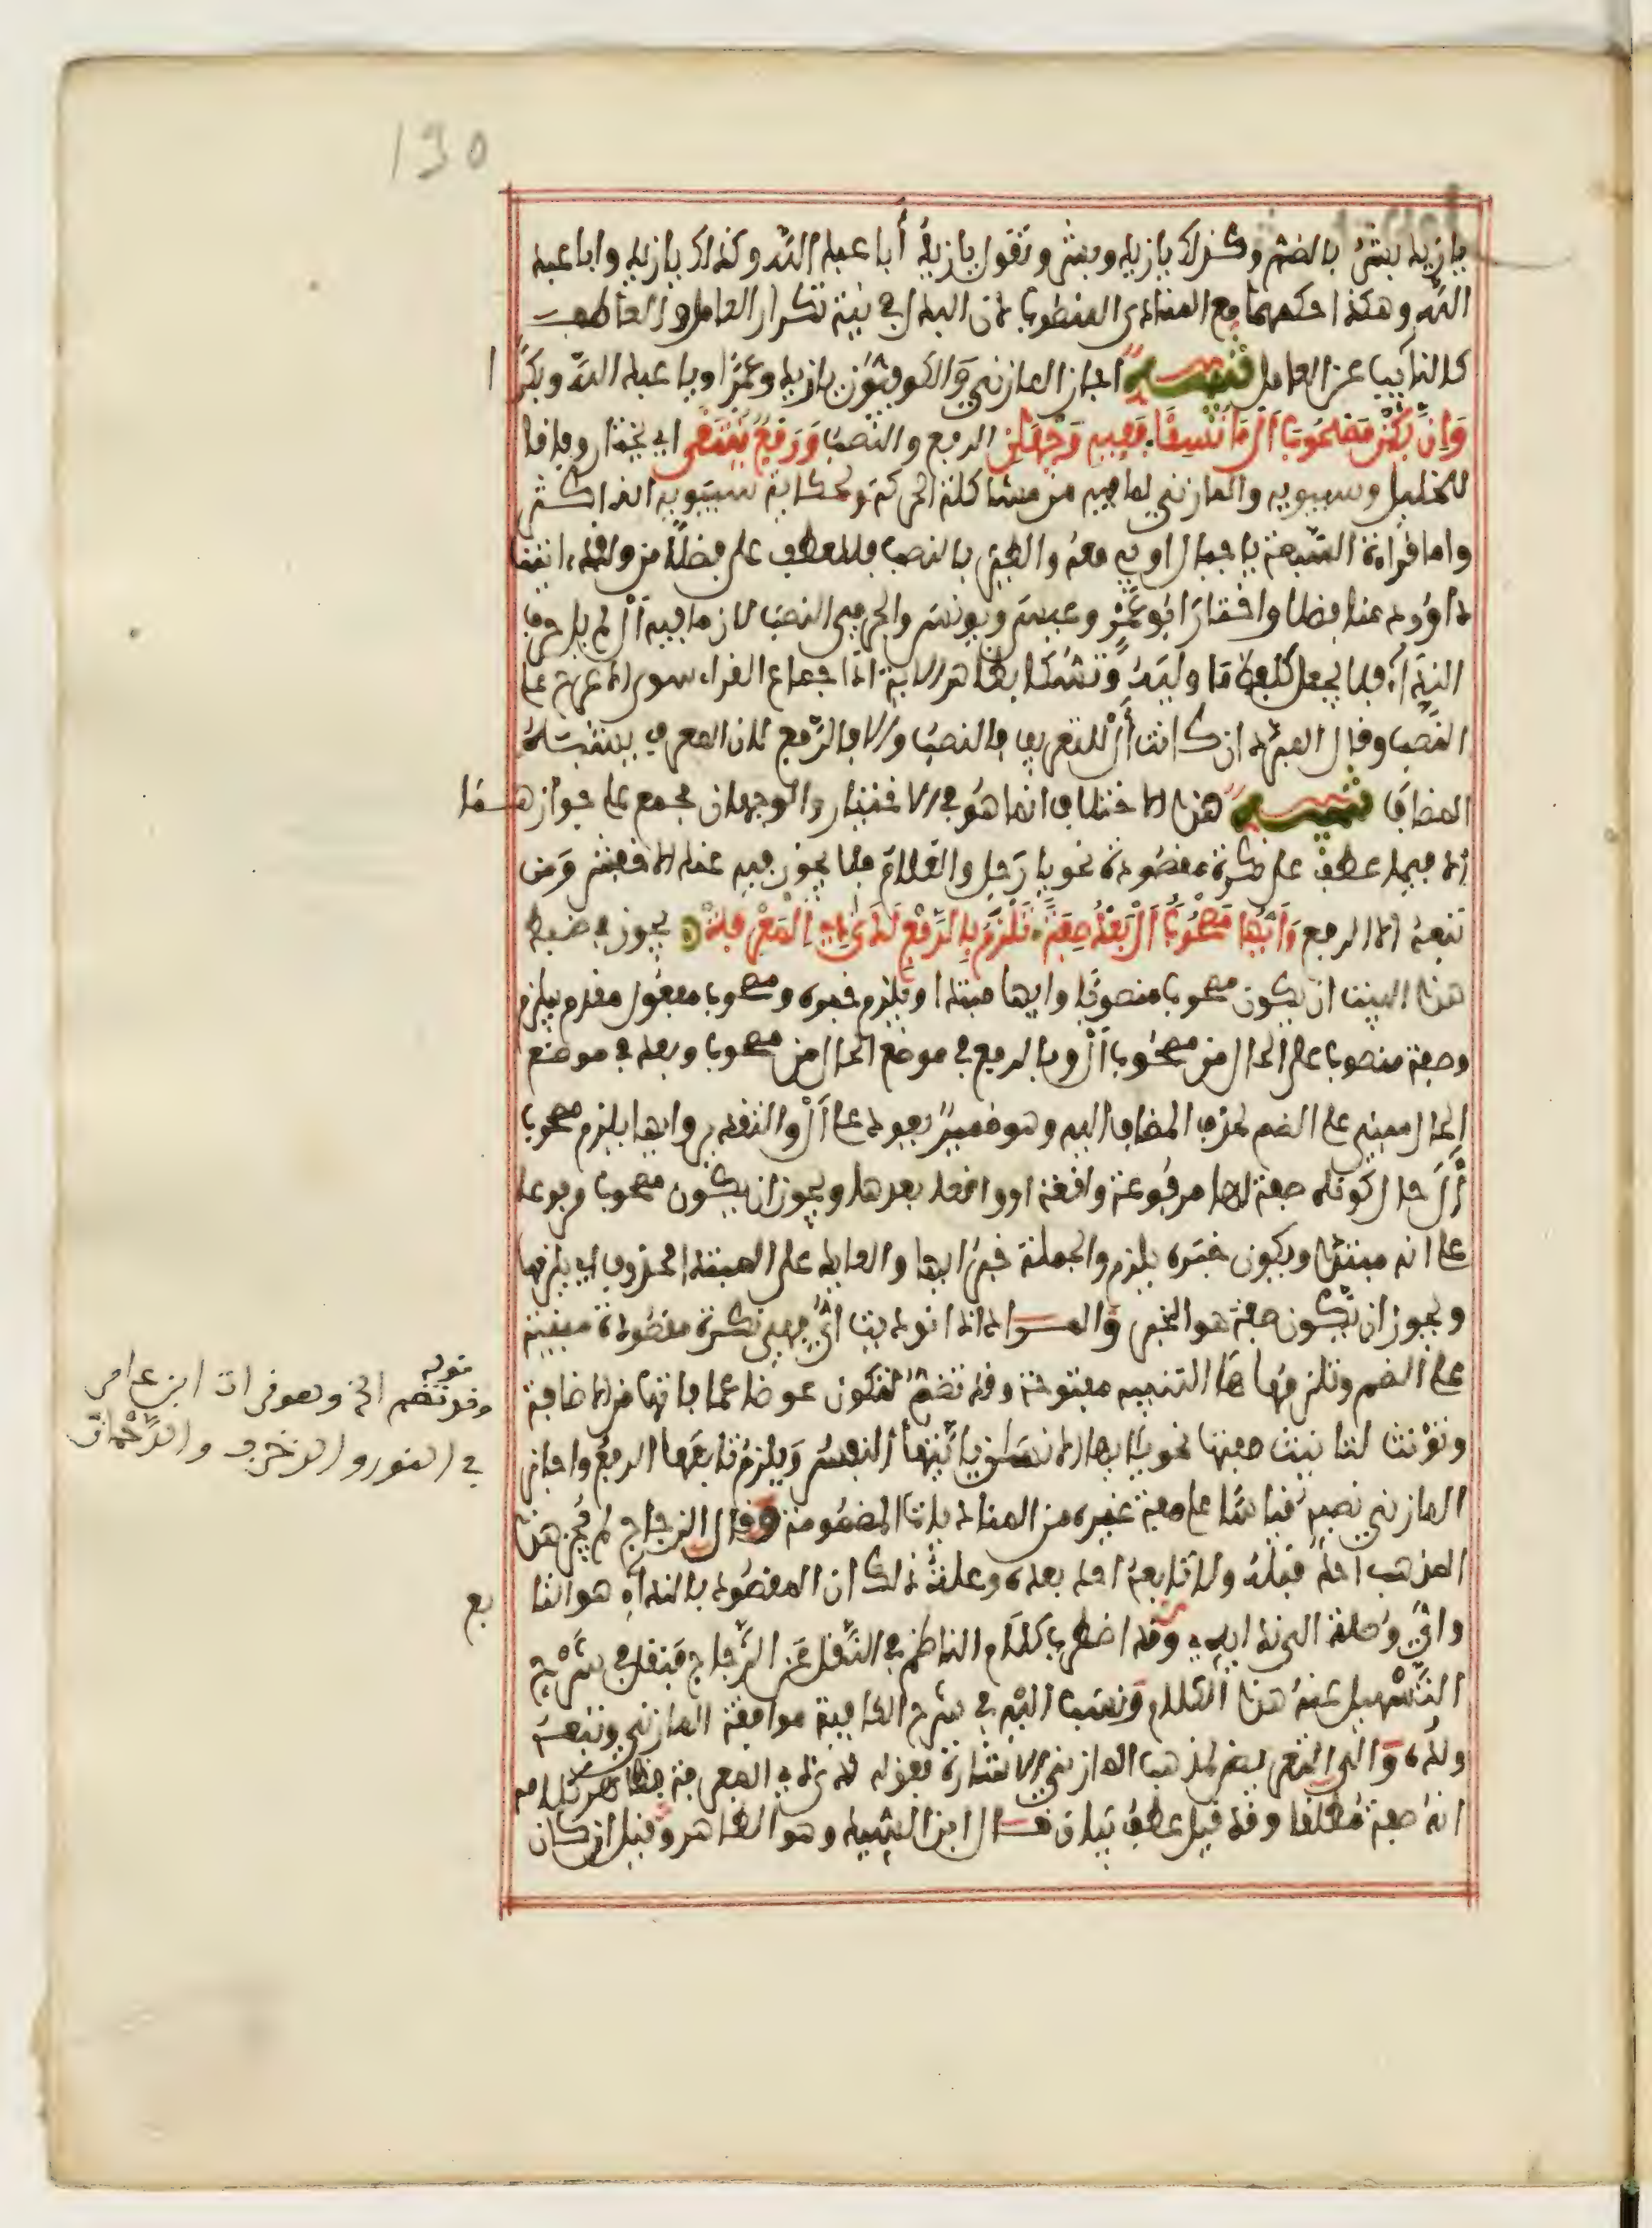 130
يا زيد بشر بالضم وكذلك يا زيد وبشر وتقول يا زيد أبا عبد الله وكذلك يا زيد وابا عبد
الله وهكذا حكمهما مع المنادى المنصوب لان البدل في نية تكرار العامل والعاطف
كالنايب عن العامل تنبيه اجاز المازني والكوفيون يا زيد وعمرا ويا عبد الله وبكرا
وَإِنْ يَكُنْ مَصْحُوبَ أَلْ مَا نُسِقَا فَفِيهِ وَجْهَانِ الرفع والنصب وَرَفْعٌ يُنْتَقَى اي يختار وفاقا
للخليل وسيبويه والمازني لما فيه من مشاكلة الحركة ولحكاية سيبويه انه اكثر
واما قراءة السبعة يا جبال اوبي معه والطير بالنصب فللعطف على فضلا من ولقد اتينا
داوود منا فضلا واختار ابو عمرو وعيسى ويونس والجرمي النصب لان ما فيه أل لم يل حرف
النداء فلا يجعل كلفظ ما وليه وتمسكا بظاهر الاية اذ اجماع القراء سوى الاعرج على
النصب وقال المبرد ان كانت أل للتعريف فالنصب والا فالرفع لان المعرف يشبه
المضاف تنبيه هذا الاختلاف انما هو في الاختيار والوجهان مجمع على جوازهما
الا فيما عطف على نكرة مقصودة نحو يا رجل والغلام فلا يجوز فيه عند الاخفش ومن
تبعه الا الرفع وَأَيُّهَا مَصْحُوبُ أَلْ بَعْدُ صِفَهْ يَلْزَمُ بِالرَّفْعِ لَدَى ذِي الْمَعْرِفَهْ يجوز في ضبط
هذا البيت ان يكون مصحوب منصوبا وايها مبتدا ويلزم خبره ومصحوب مفعول مقدم بيلزم
وصفة منصوب على الحال من مصحوب أل وبالرفع في موضع الحال من مصحوب وبعد في موضع
الحال مبني على الضم لحذف المضاف اليه وهو ضمير يعود على أل والتقدير وايها يلزم مصحوب
أل حال كونه صفة لها مرفوعة واقعة او واقعا بعدها ويجوز ان يكون مصحوب مرفوعا
على انه مبتدا ويكون خبره يلزم والجملة خبر ايها والعايد على المبتدا محذوف اي يلزمها
ويجوز ان تكون صفة هو الخبر والمراد اذا نوديت أي فهي نكرة مقصودة مبنية
على الضم وتلزمها ها التنبيه مفتوحة وقد تضم لتكون عوضا عما فاتها من الاضافة
وتؤنث لتانيث صفتها نحو يا ايها الانسان يا ايتها النفس ويلزم تابعها الرفع واجاز
المازني نصبه قياسا على صفة غيره من المناديات المضمومة وقال الزجاج لم يجز هذا
المذهب احد قبله ولا تابعه احد بعده وعلة ذلك ان المقصود بالنداء هو التابع
وأي وصلة الى ندائه وقد اضطرب كلام الناظم في النقل عن الزجاج فنقل في شرح
التسهيل عنه هذا الكلام ونسب اليه في شرح الكافية موافقة المازني وتبعه
ولده والى التعريض لمذهب المازني الاشارة بقوله لدى ذي المعرفة وظاهر كلامه
انه صفة مطلقا وقد قيل عطف بيان قال ابن السيد وهو الظاهر وقيل ان كان
قوله
وقد تضم الخ وهو قرات ابن عامر
في النور والزخرف والرحمان